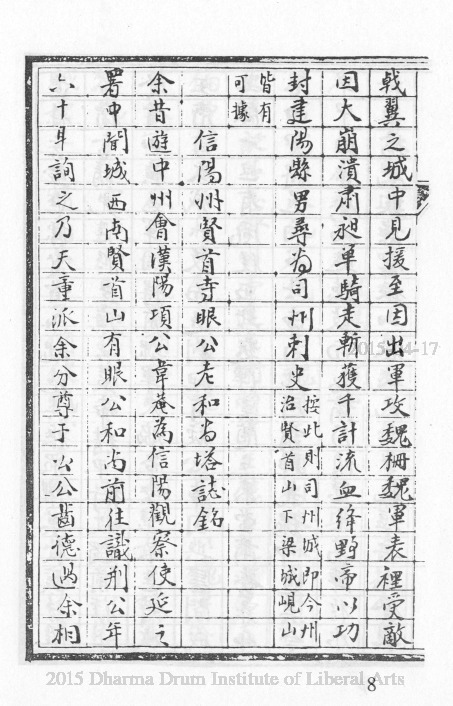 戟翼之城中見援至因出軍攻魏柵魏軍表裡受敵
因大崩潰肅昶單騎走斬獲千計流血絳野帝以功
封建陽縣男尋為司州刺史
按此則司州城即今州
治賢首山下梁城峴山
皆有
可據
信陽州賢首寺眼公老和尚塔誌銘
余昔遊中州會漢陽項公韋菴為信陽觀察使延之
署中聞城西南賢首山有眼公和尚前往識荊公年
六十耳詢之乃天童派余分尊于公公齒德過余相
2015 Dharma Drum Institute of Liberal Arts
8